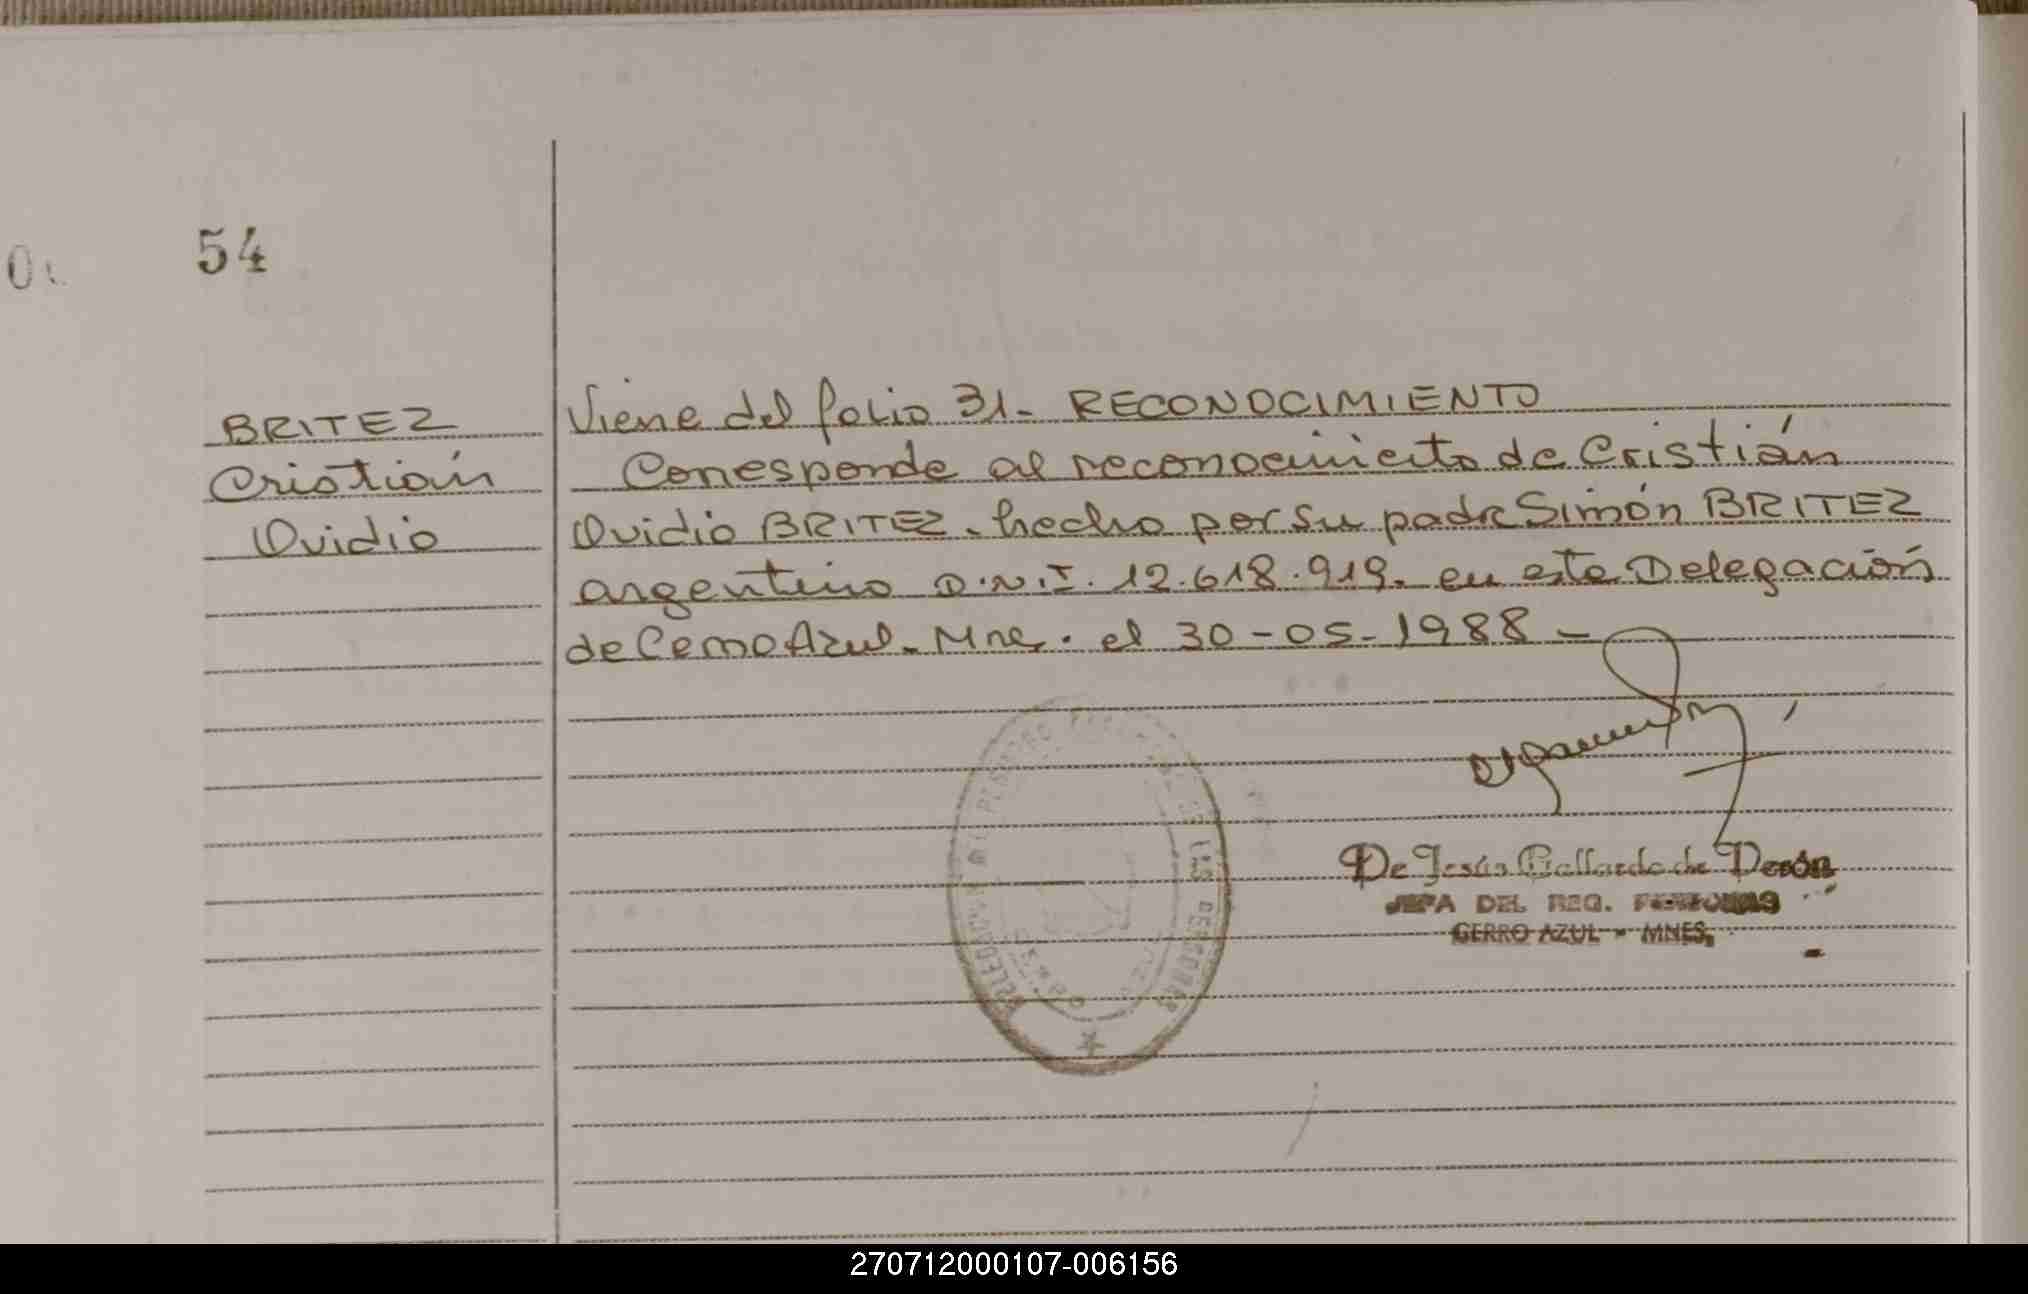 54
BRITEZ
Cristián
Ovidio
Viene del folio 31. RECONOCIMIENTO
Corresponde al reconocimiento de Cristián
Ovidio BRITEZ. hecho por su padre Simón BRITEZ
argentino D.N.I. 12.618.919. en esta Delegación
de Cerro Azul. Mnes. el 30-05-1988-
De Jesús Gallardo de
JEFA DEL REG. PERSONAS
CERRO AZUL - MNES.
270712000107-006156